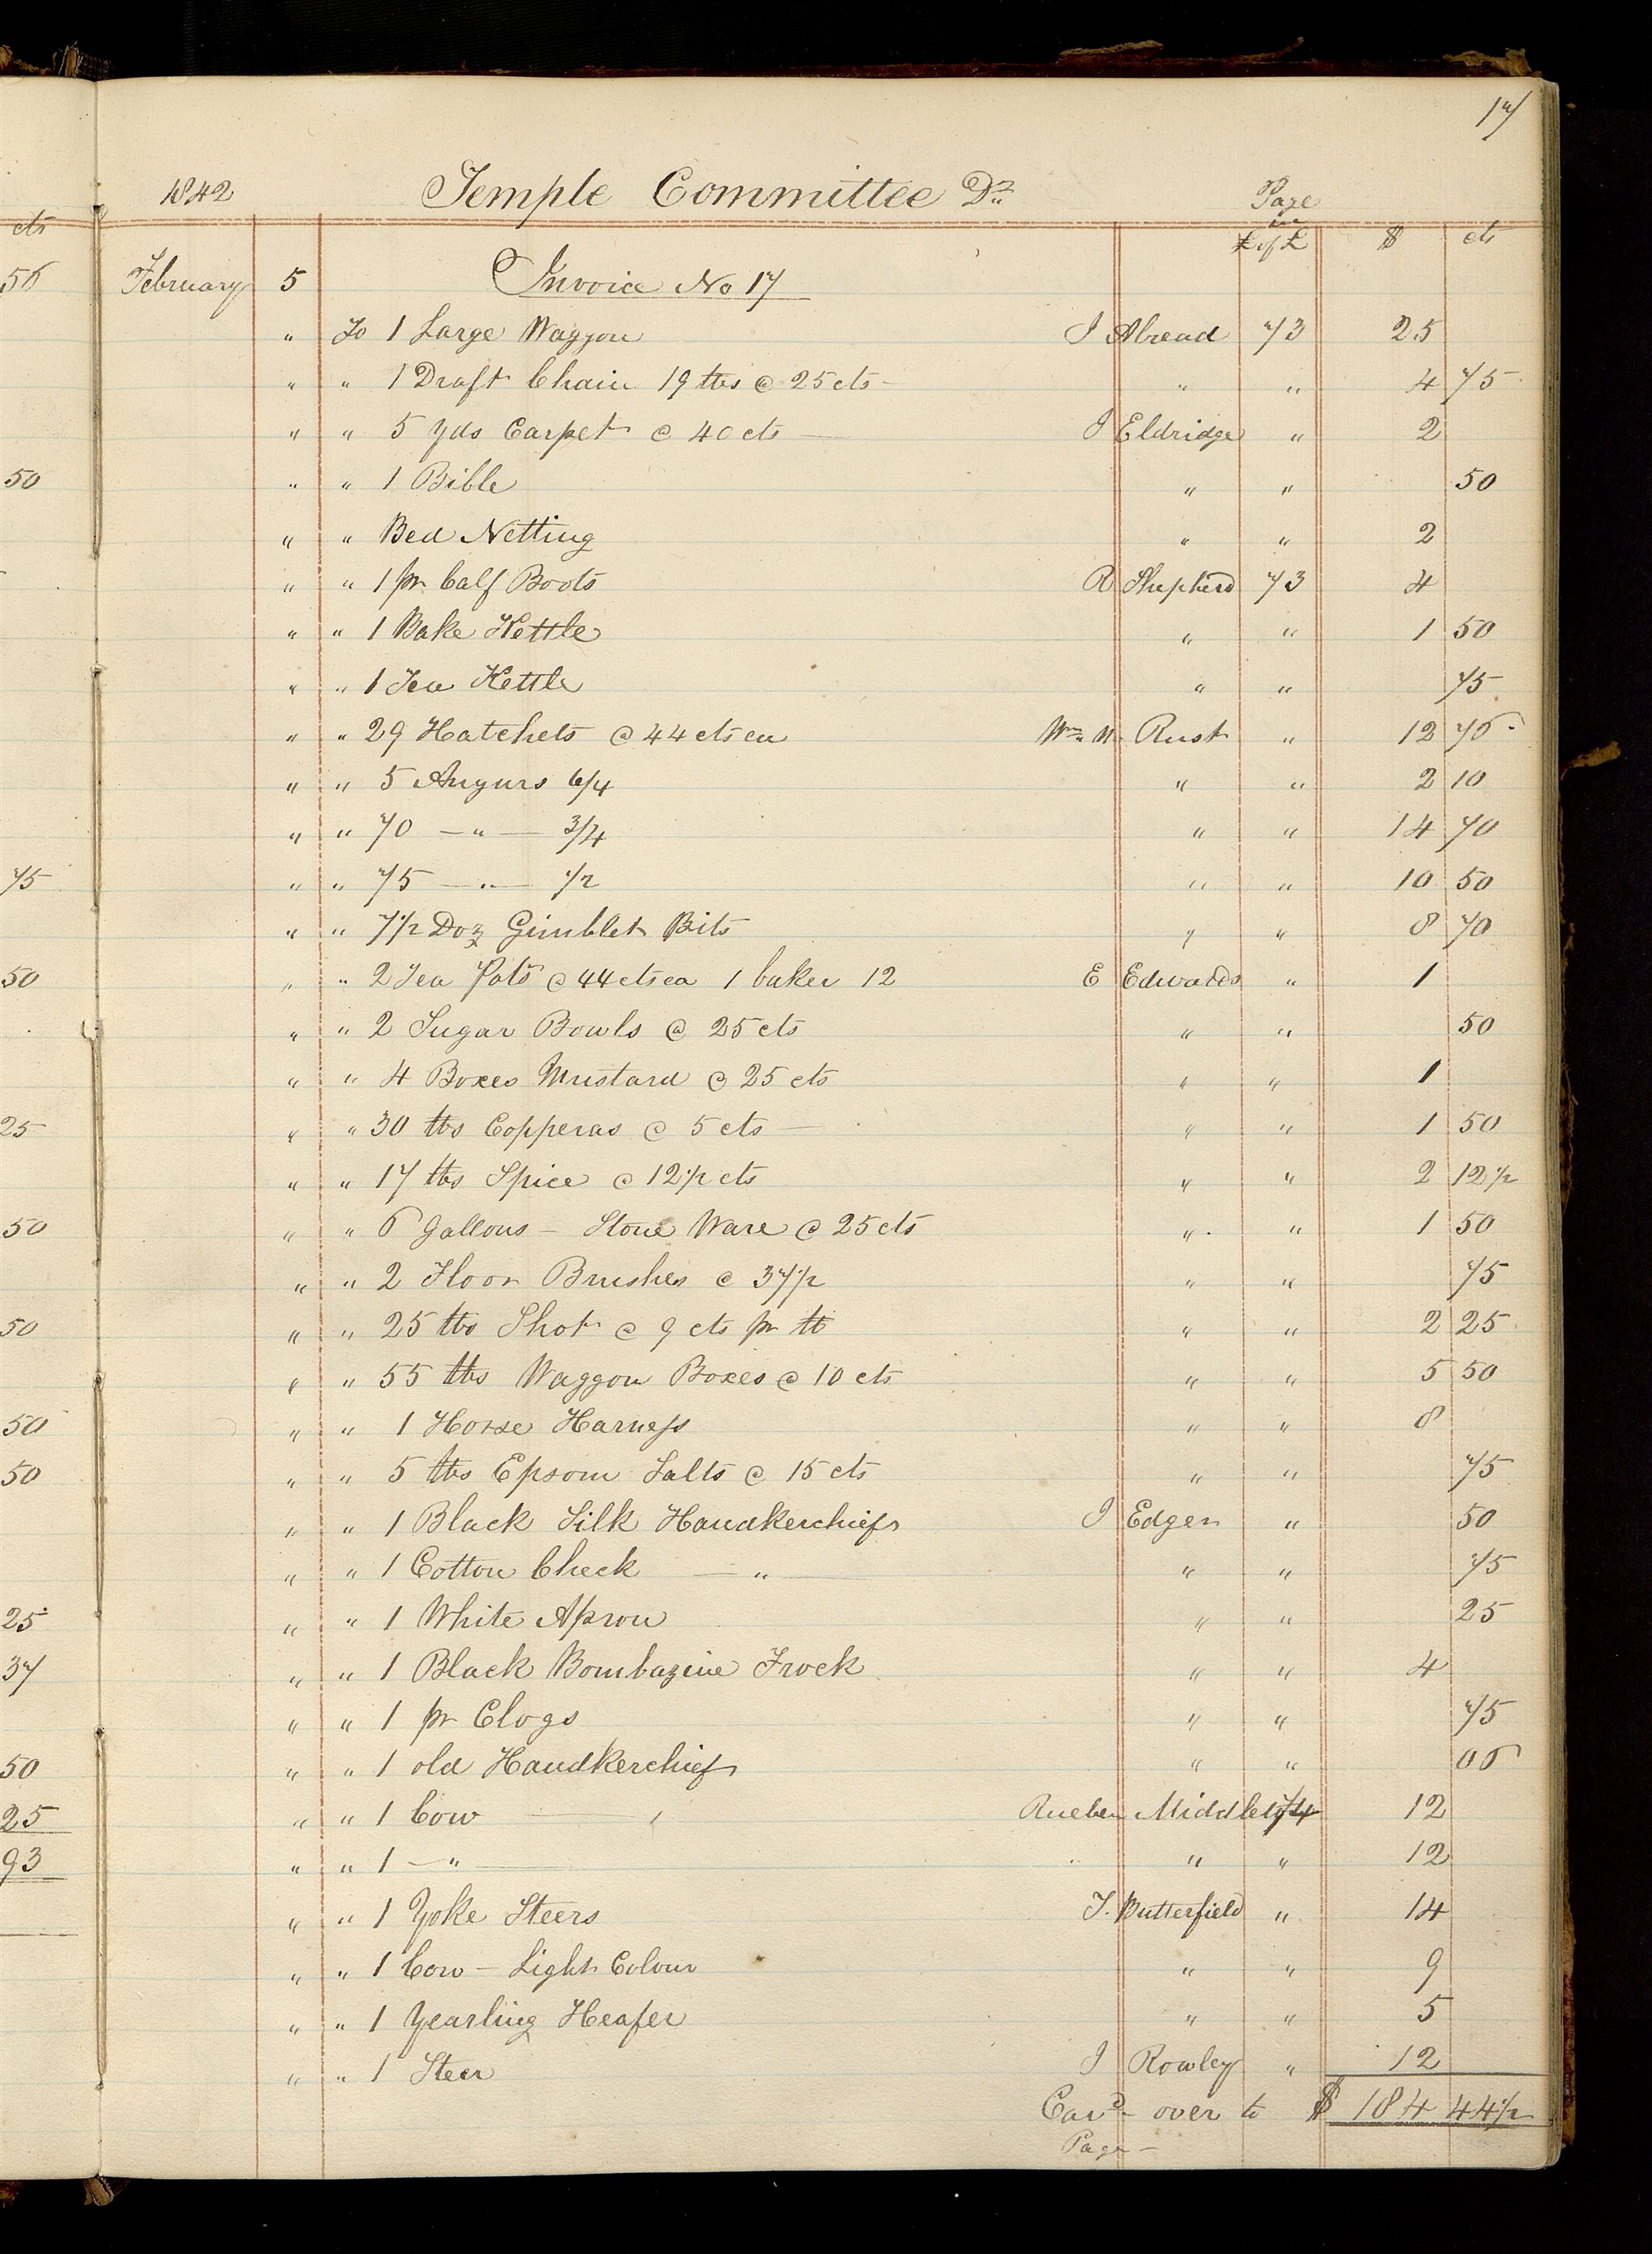 17
1842 Temple Committee Dr. Page
cts £ of £ $ cts
56 February 5 Invoice No 17
" To 1 Large Waggon J Alread 73 25
" " 1 Draft Chain 19 lbs @ 25 cts - " " 4 75
" " 5 yds Carpet @ 40 cts — J Eldridge " 2
50 " " 1 Bible " " 50
" " Bed Netting " " 2
" " 1 pr Calf Boots R Shepherd 73 4
" " 1 Bake Kettle " " 1 50
" " 1 Tea Kettle " " 75
" " 29 Hatchets @ 44 cts ea Wm W Rust " 12 76
" " 5 Augurs 6/4 " " 2 10
" " 70 — " — 3/4 " " 14 70
75 " " 75 — " — 1/2 " " 10 50
" " 7 1/2 Doz Gimblet Bits " " 8 70
50 " " 2 Tea Pots @ 44 cts ea 1 baker 12 E Edwards " 1
" " 2 Sugar Bowls @ 25 cts " " 50
" " 4 Boxes Mustard @ 25 cts " " 1
25 " " 30 lbs Copperas @ 5 cts — " " 1 50
" " 17 lbs Spice @ 12 1/2 cts " " 2 12 1/2
50 " " 6 Gallons - Stone Ware @ 25 cts " " 1 50
" " 2 Floor Brushes @ 37 1/2 " " 75
50 " " 25 lbs Shot @ 9 cts pr lb " " 2 25
" " 55 lbs Waggon Boxes @ 10 cts " " 5 50
50 " " 1 Horse Harness " " 8
50 " " 5 lbs Epsom Salts @ 15 cts " " 75
" " 1 Black Silk Handkerchiefs J Edger " 50
" " 1 Cotton Check — " — " " 75
25 " " 1 White Apron " " 25
37 " " 1 Black Bombazine Frock " " 4
" " 1 pr Clogs " " 75
50 " " 1 old Handkerchief " " 06
25 " " 1 Cow — Rueben Middleton 74 12
93 " " 1 — " — " " " 12
" " 1 Yoke Steers J. Butterfield " 14
" " 1 Cow - Light Colour " " 9
" " 1 Yearling Heafer " " 5
" " 1 Steer J Rowley " 12
Card - over to $ 184 44 1/2
Page -